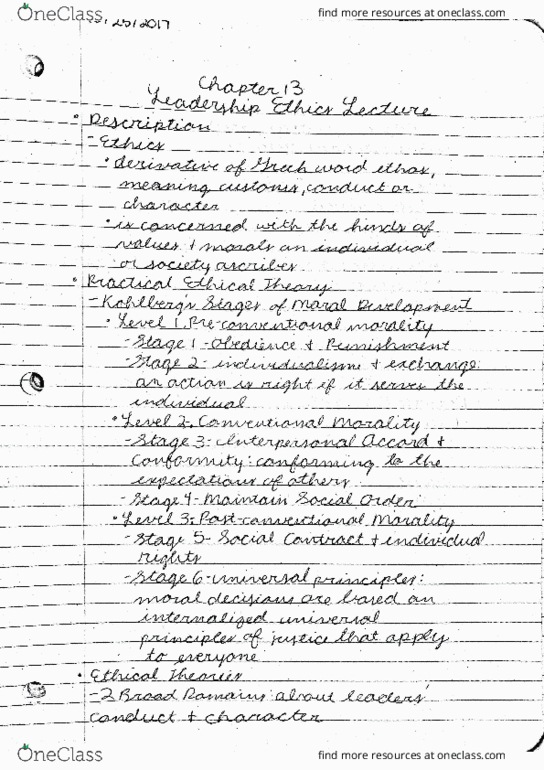 OneClass
find more resources at oneclass.com
25/2017
Chapter 13
Leadership Ethics Lecture
• Description
- Ethics
• derivative of Greek word ethos,
meaning customs, conduct or
character
• is concerned with the kinds of
values + morals an individual
or society ascribes
• Practical Ethical Theory
- Kohlberg's Stages of Moral Development
• Level 1. Pre-conventional morality
- Stage 1 - Obedience + Punishment
- Stage 2 - individualism + exchange:
an action is right if it serves the
individual
• Level 2: Conventional Morality
- Stage 3: Interpersonal Accord +
Conformity: conforming to the
expectations of others
- Stage 4 - Maintain Social Order
• Level 3: Post-conventional Morality
- Stage 5 - Social Contract + individual
rights
- Stage 6 - universal principles:
moral decisions are based on
internalized universal
principles of justice that apply
to everyone
• Ethical Theories
- 2 Broad Domains: about leaders'
conduct + character
OneClass
find more resources at oneclass.com